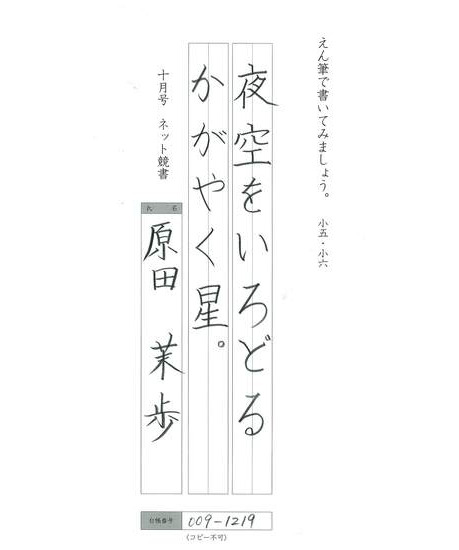 えん筆で書いてみましょう。 小五・小六
夜空をいろどる
かがやく星。
十月号 ネット競書
氏名
原田 茉歩
台帳番号 009-1219
(コピー不可)